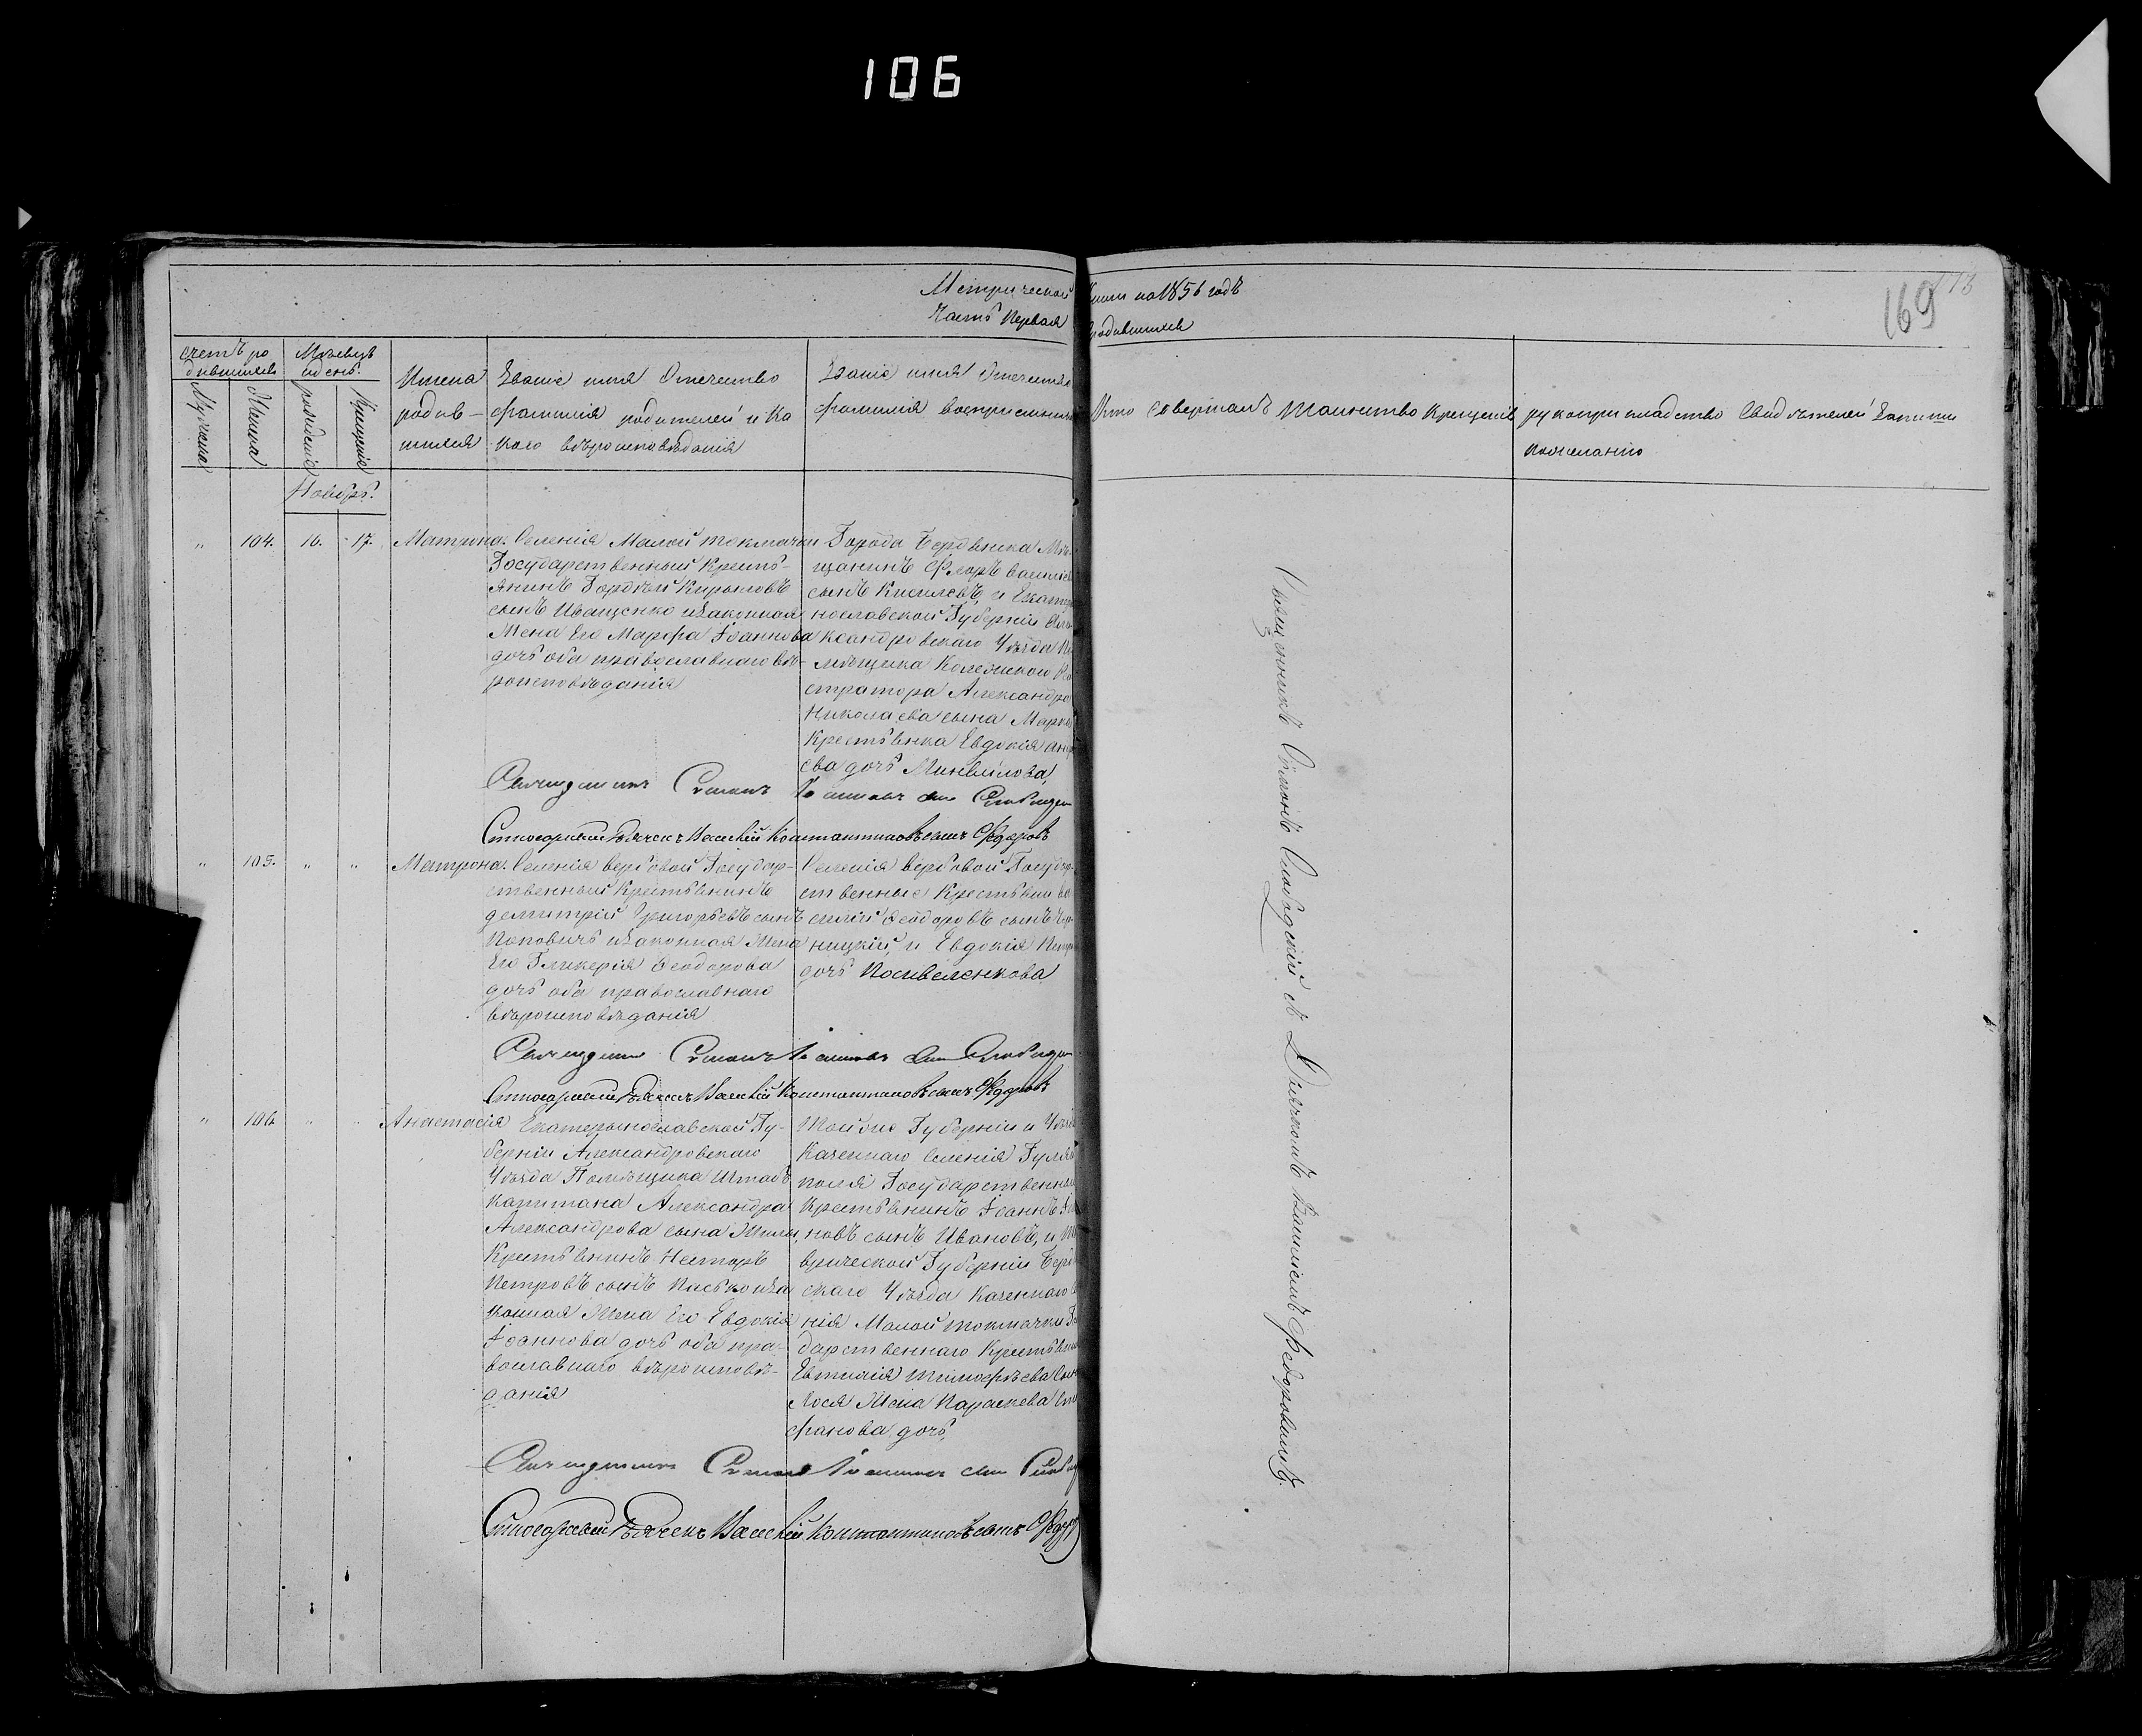 106
Метрической книги на 1856 годъ
Часть Первая родившихся
169
счетъ родившихся
Мужеска
Женска
Мѣсяцъ и день.
рожденіе
Крещеніе
Имена
родив-
шихся
Званіе имя Отечество
фамилія родителей и ка
кого вѣроисповѣданія
Званіе имя Отечество
фамилія воспріемниковъ
Кто совершалъ таинство Крещенія
рукоприкладство Свидѣтелей записи
пожеланію
Ноябрь.
„ 104. 16. 17. Матрона.
Селенія Малой токмачки
Государственный Кресть-
янинъ Гордѣй Кириловъ
сынъ Иващенко изаконная
Жена Его Марфа Іоаннова
дочь оба православнаго вѣ-
роисповѣданія
Города Бердянска Мѣ-
щанинъ Флоръ
сынъ Киселевъ, и Екатери
нославской Губерніи Але
ксандровскаго Уѣзда По
мѣщика Колежскаго
стратора Александра
Николаева сына
Крестьянка Евдокія
ева дочь
Священникъ Симонъ Іоанновъ сынъ
Стихарный Дьячекъ Василій Константиновъ сынъ Федоровъ
„ 105. „ „ Матрона.
Селенія вербовой Государ-
ственный Крестьянинъ
димитрій Григорьевъ сынъ
Поповичъ изаконная Жена
Его Гликерія Феодорова
дочь оба православнаго
вѣроисповѣданія
Селенія вербовой Государ
ственные Крестьяни Ва
силій Феодоровъ сынъ
ницкій, и Евдокія
дочь Посивеленкова
Священникъ Симонъ Іоанновъ сынъ
Стихарный Дьячекъ Василій Константиновъ сынъ Федоровъ
„ 106 „ „ Анастасія
Екатеринославской Гу-
берніи Александровскаго
Уѣзда Помѣщика Штабъ
капитана Александра
Александрова сына
Крестьянинъ Несторъ
Петровъ сынъ Паськоиза
конная Жена Его Евдокія
Іоаннова дочь оба пра-
вославнаго вѣроисповѣ-
данія
Тойже Губерніи и Уѣзда
Казеннаго Селенія Гуляй
поля Государственный
Крестьянинъ Іоаннъ Іоан
новъ сынъ Ивановъ, и Та
врической Губерніи Бердян
скаго Уѣзда Казеннаго Селе
нія Малой токмачки Госу
дарственнаго Крестьянина
Евтихія тимофѣева сына
Лося Жена Параскева Сте
фанова дочь,
Священникъ Симонъ Іоанновъ сынъ
Стихарный Дьячекъ Василій Константиновъ сынъ
Священникъ Симонъ съ Дьячкомъ Василіемъ Федоровымъ.